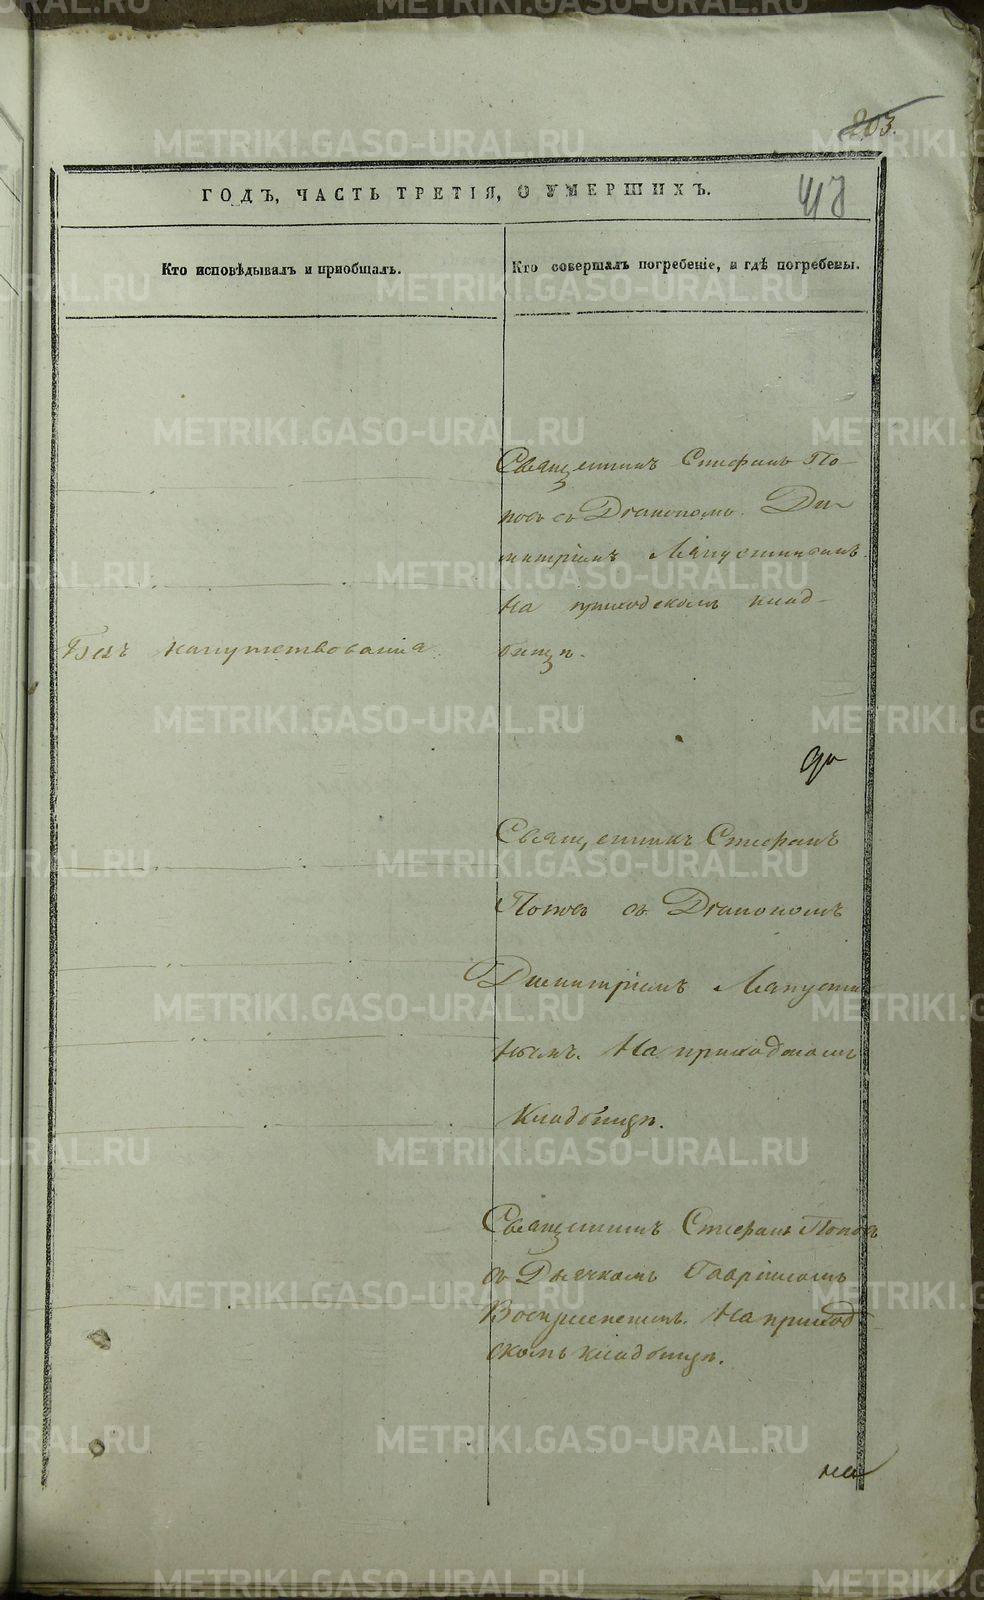 203.
ГОДЪ, ЧАСТЬ ТРЕТІЯ, О УМЕРШИХЪ.
Кто исповѣдывалъ и пріобщалъ.
Кто совершалъ погребеніе, и гдѣ погребены.
Священникъ Стефанъ По-
повъ съ Діакономъ Ди-
митріемъ Ляпустинымъ
На приходскомъ клад-
бищѣ.
Безъ напутствованія
Священникъ Стефанъ
Поповъ съ Діакономъ
Димитріемъ Ляпусти
нымъ. На приходскомъ
Кладбищѣ.
Священникъ Стефанъ Поповъ
съ Дьячкомъ Гавріиломъ
Воскресенскимъ. На приход
скомъ кладбищѣ.
METRIKI.GASO-URAL.RU